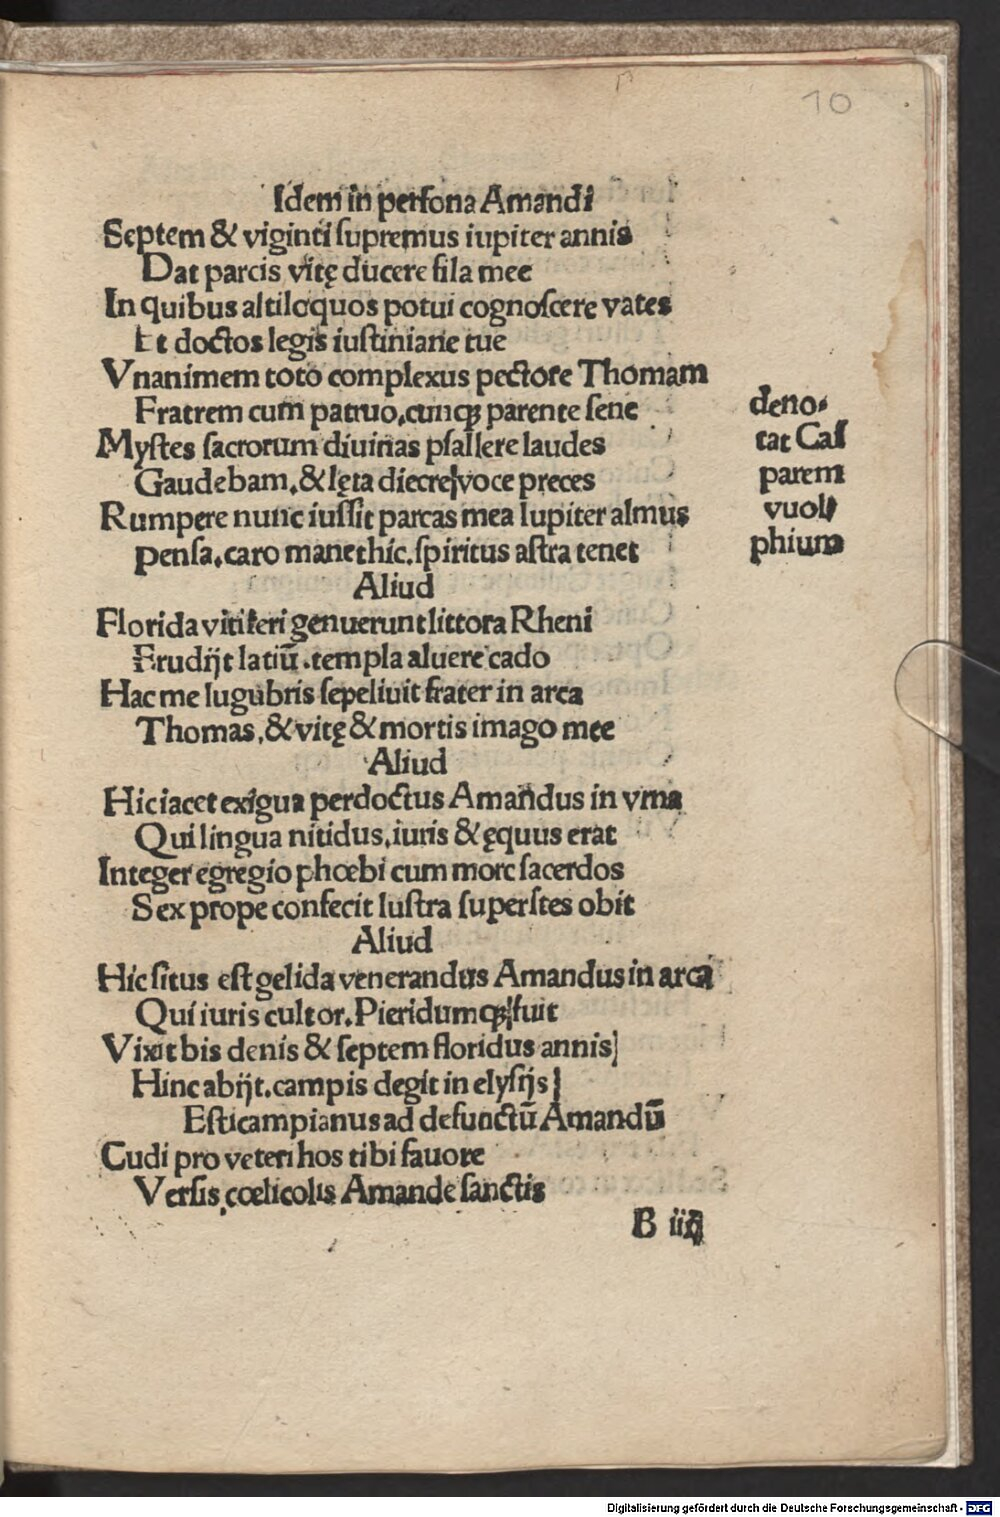 10
Idem in persona Amandi
Septem & viginti supremus iupiter annis
Dat parcis vitę ducere fila mee
In quibus altiloquos potui cognoscere vates
Et doctos legis iustiniane tue
Vnanimem toto complexus pectore Thomam
Fratrem cum patruo.cunqꝫ parente sene
Mystes sacrorum diuinas psallere laudes
Gaudebam.& lęta diecre|voce preces
Rumpere nunc iussit parcas mea Iupiter almus
pensa.caro manet hic.spiritus astra tenet
deno-
tat Cas
parem
vuol
phium
Aliud
Florida vitiferi genuerunt littora Rheni
Erudijt latiū.templa aluere cado
Hac me lugubris sepeliuit frater in arca
Thomas.& vitę & mortis imago mee
Aliud
Hic iacet exigua perdoctus Amandus in vrna
Qui lingua nitidus.iuris & ęquus erat
Integer egregio phœbi cum more sacerdos
Sex prope confecit lustra superstes obit
Aliud
Hic situs est gelida venerandus Amandus in arca
Qui iuris cultor.Pieridumqꝫ|fuit
Vixit bis denis & septem floridus annis|
Hinc abijt.campis degit in elysijs|
Esticampianus ad defunctū Amandū
Cudi pro veteri hos tibi fauore
Versis cœlicolis Amande sanctis
B iiij
Digitalisierung gefördert durch die Deutsche Forschungsgemeinschaft - DFG